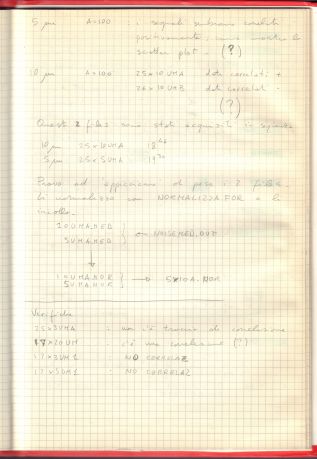 5 μm A=100 : i segnali sembrano correlati
positivamente, come mostra lo
scatter plot. (?)
10 μm A=100 25x10UMA dati correlati +
26x10UMB dati correlati -
(?)
Questi 2 files sono stati acquisiti in sequenza
10 μm 25x10UMA 18
5 μm 25x5UMA 19
Provo ad appiccicare di peso i 2 files
li normalizzo con NORMALIZZA.FOR e li
incollo.
10UMA.MED
5UMA.MED } NOISEMED.OUT
↓
10UMA.NOR
5UMA.NOR } → 5x10A.NOR
Verifiche
25x3UMA : non c'è traccia di correlazione
17x20UM : c'è una correlazione (?)
17x3UM1 : NO CORRELAZ
17x5UM1 : NO CORRELAZ